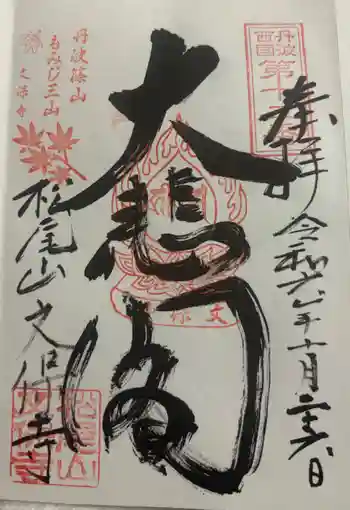 奉拝
令和六年十月二十六日
丹波
西国
第十
大悲閣
丹波篠山
もみじ三山
文保寺
松尾山文保寺